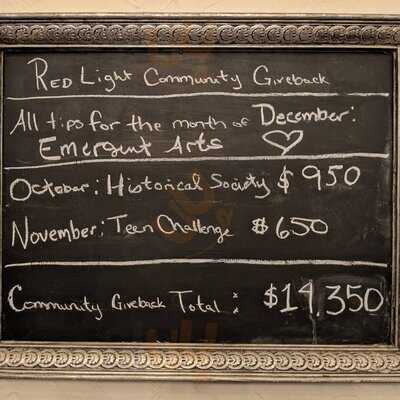 Red Light Community Giveback
All tips for the month of December:
Emergent Arts
October: Historical Society $950
November: Teen Challenge $650
Community Giveback Total: $14,350